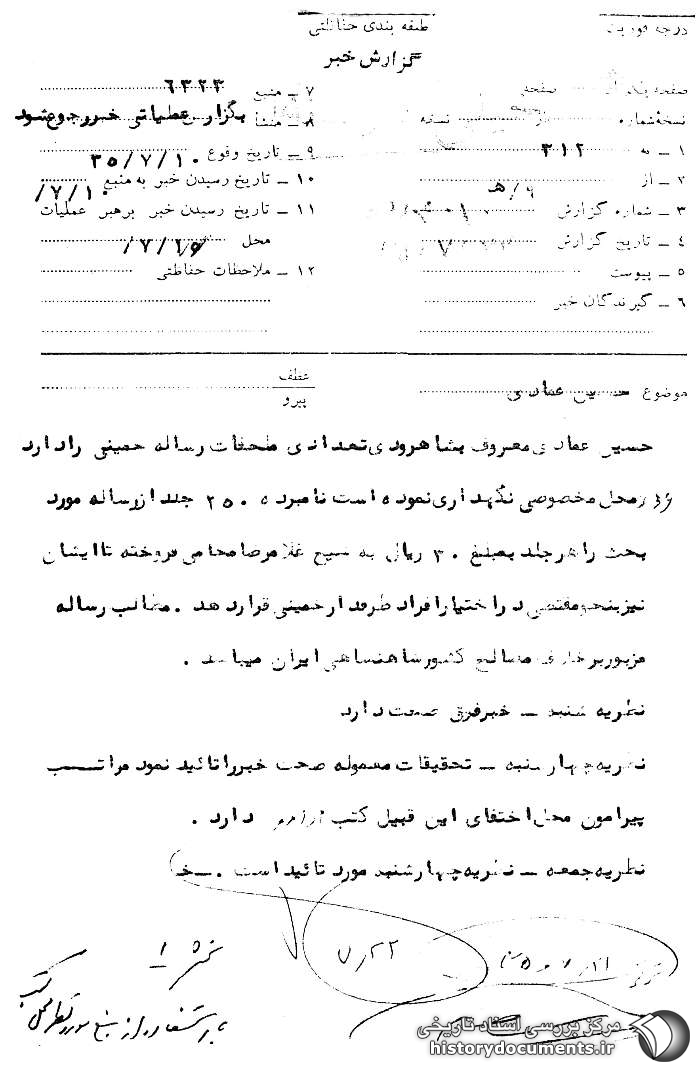 درجه فوریت
طبقه بندی حفاظتی
گزارش خبر
صفحه یک از صفحه
نسخهٔ شماره از نسخه
۱ ـ به ۳۱۲
۲ ـ از ۹/هـ
۳ ـ شماره گزارش
۴ ـ تاریخ گزارش
۵ ـ پیوست
۶ ـ گیرندگان خبر
۷ ـ منبع ۶۳۲۳
۸ ـ منشأ بگزارش عملیاتی خبر رجوع شود
۹ ـ تاریخ وقوع ۳۵/۷/۱۰
۱۰ ـ تاریخ رسیدن خبر به منبع ۷/۱۰/
۱۱ ـ تاریخ رسیدن خبر برهبر عملیات
محل ۷/۱۶/
۱۲ ـ ملاحظات حفاظتی
موضوع حسین عمادی
عطف
پیرو
حسین عمادی معروف بشاهرودی تعدادی ملحقات رساله خمینی را دارد
که در محل مخصوصی نگهداری نموده است نامبرده ۲۵۰ جلد از رساله مورد
بحث را هر جلد بمبلغ ۳۰ ریال به شیخ غلامرضا محامی فروخته تا ایشان
نیز بنحو مقتضی در اختیار افراد طرفدار خمینی قرار دهد . مطالب رساله
مزبور بر خلاف مصالح کشور شاهنشاهی ایران میباشد .
نظریه شنبه ـ خبر فوق صحت دارد
نظریه چهارشنبه ـ تحقیقات معموله صحت خبر را تائید نمود مراتب
پیرامون محل اختفای این قبیل کتب دارد .
نظریه جمعه ـ نظریه چهارشنبه مورد تائید است . ـ خ
۷/۲۲
مرکز بررسی اسناد تاریخی
historydocuments.ir